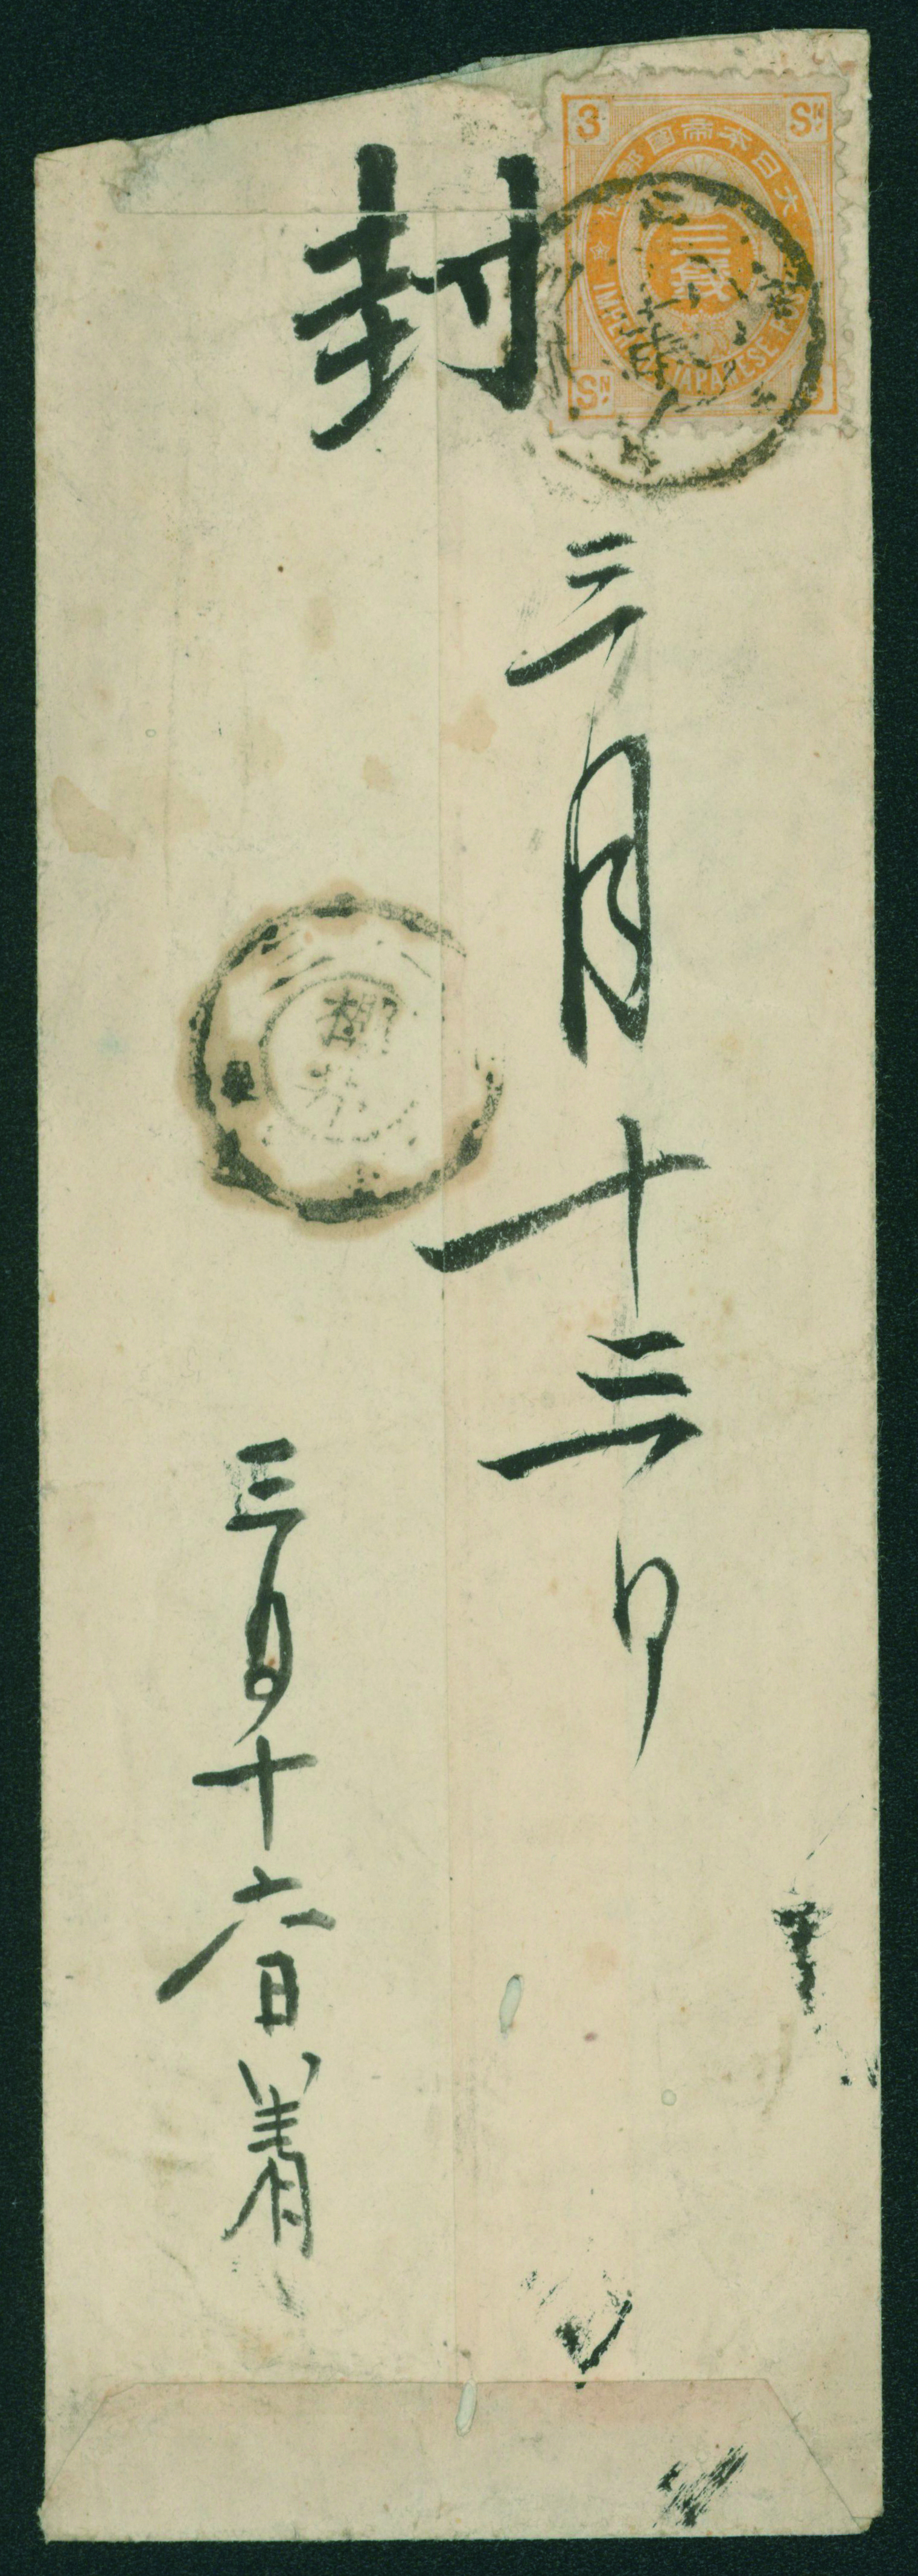 3 SN
大日本帝國郵便
三錢
IMPERIAL JAPANESE POST
SN
封
三月十三日
三月十六日着